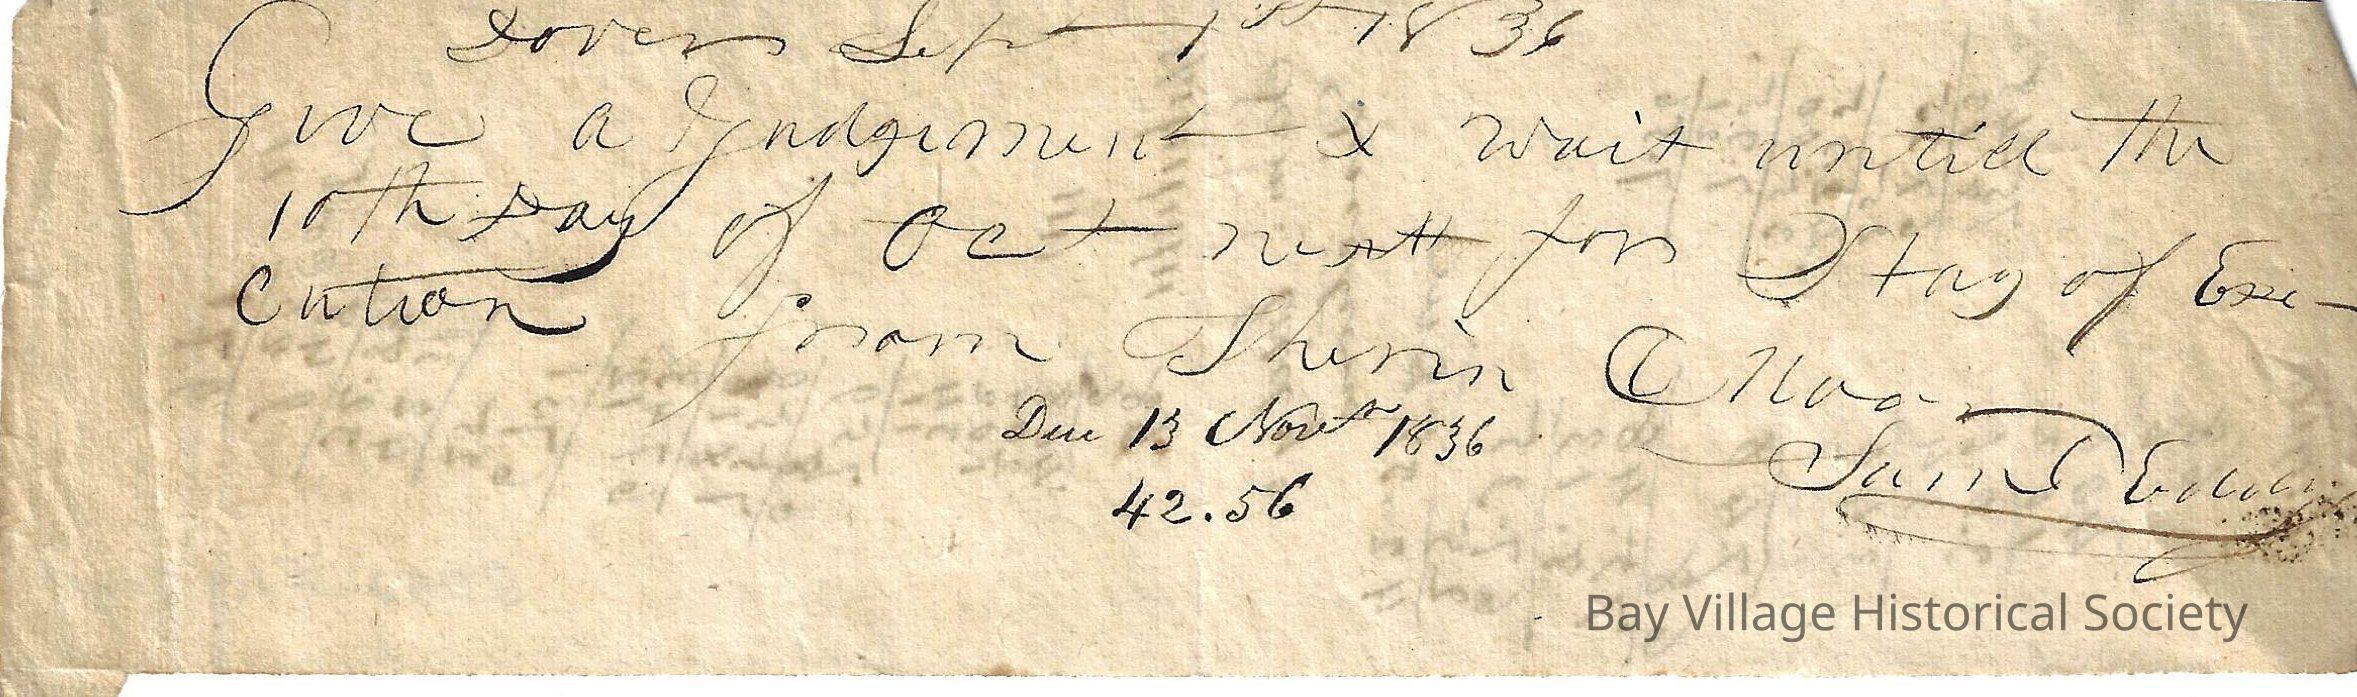 Dover Sept 1st 1836
Give a Judgement & wait untill the
10th Day of Oct next for Stay of Exe-
cution from Sherin
Saml Eddy
Due 13 Novr 1836
42.56
Bay Village Historical Society